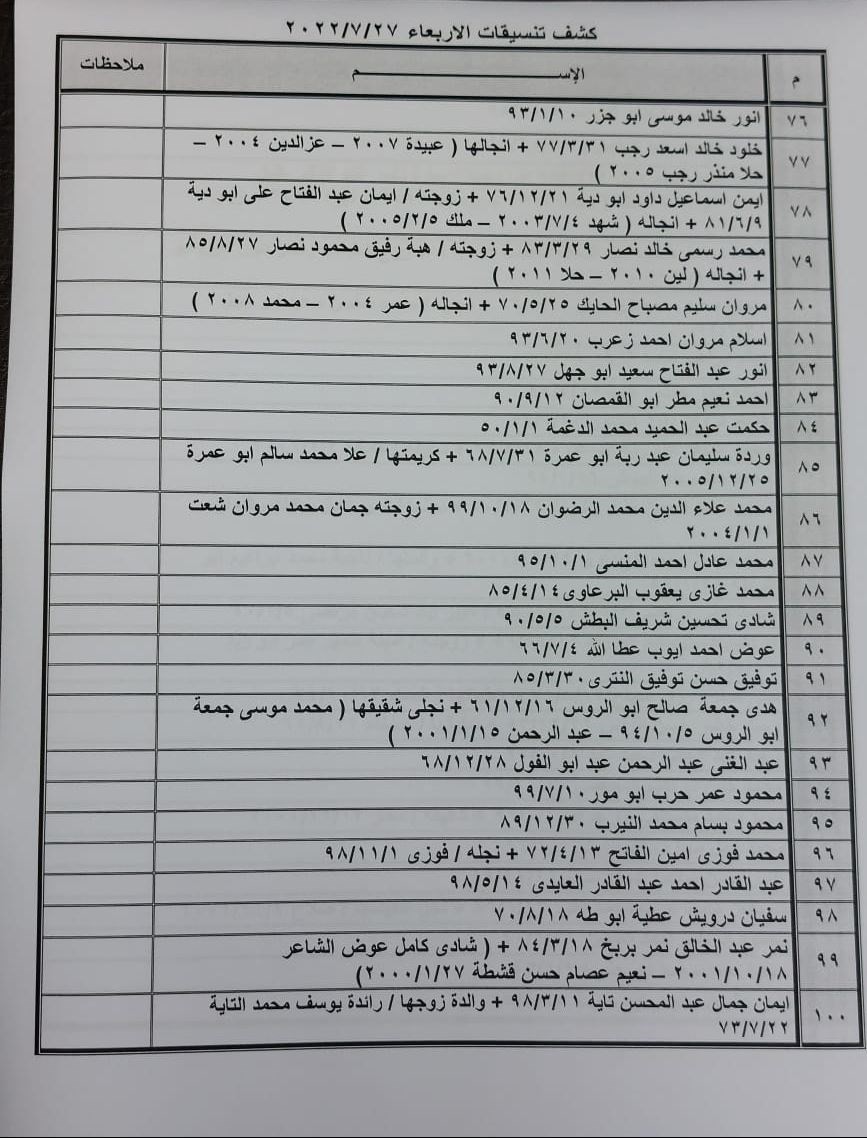 كشف تنسيقات الاربعاء ٢٠٢٢/٧/٢٧
م الإســـــم ملاحظات
٧٦ انور خالد موسى ابو جزر ٩٣/١/١٠
٧٧ خلود خالد اسعد رجب ٧٧/٣/٣١ + انجالها ( عبيدة ٢٠٠٧ – عزالدين ٢٠٠٤ –
حلا منذر رجب ٢٠٠٥ )
٧٨ ايمن اسماعيل داود ابو دية ٧٦/١٢/٢١ + زوجته / ايمان عبد الفتاح على ابو دية
٨١/٦/٩ + انجاله ( شهد ٢٠٠٣/٧/٤ – ملك ٢٠٠٥/٢/٥ )
٧٩ محمد رسمى خالد نصار ٨٣/٣/٢٩ + زوجته / هبة رفيق محمود نصار ٨٥/٨/٢٧
+ انجاله ( لين ٢٠١٠ – حلا ٢٠١١ )
٨٠ مروان سليم مصباح الحايك ٧٠/٥/٢٥ + انجاله ( عمر ٢٠٠٤ – محمد ٢٠٠٨ )
٨١ اسلام مروان احمد زعرب ٩٣/٦/٢٠
٨٢ انور عبد الفتاح سعيد ابو جهل ٩٣/٨/٢٧
٨٣ احمد نعيم مطر ابو القمصان ٩٠/٩/١٢
٨٤ حكمت عبد الحميد محمد الدغمة ٥٠/١/١
٨٥ وردة سليمان عبد ربة ابو عمرة ٦٨/٧/٣١ + كريمتها / علا محمد سالم ابو عمرة
٢٠٠٥/١٢/٢٥
٨٦ محمد علاء الدين محمد الرضوان ٩٩/١٠/١٨ + زوجته جمان محمد مروان شعت
٢٠٠٤/١/١
٨٧ محمد عادل احمد المنسى ٩٥/١٠/١
٨٨ محمد غازى يعقوب البرعاوى ٨٥/٤/١٤
٨٩ شادى تحسين شريف البطش ٩٠/٥/٥
٩٠ عوض احمد ايوب عطا الله ٦٦/٧/٤
٩١ توفيق حسن توفيق النترى ٨٥/٣/٣٠
٩٢ هدى جمعة صالح ابو الروس ٦١/١٢/١٦ + نجلى شقيقها ( محمد موسى جمعة
ابو الروس ٩٤/١٠/٥ – عبد الرحمن ٢٠٠١/١/١٥ )
٩٣ عبد الغنى عبد الرحمن عبد ابو الفول ٦٨/١٢/٢٨
٩٤ محمود عمر حرب ابو مور ٩٩/٧/١٠
٩٥ محمود بسام محمد النيرب ٨٩/١٢/٣٠
٩٦ محمد فوزى امين الفاتح ٧٢/٤/١٣ + نجله / فوزى ٩٨/١١/١
٩٧ عبد القادر احمد عبد القادر العايدى ٩٨/٥/١٤
٩٨ سفيان درويش عطية ابو طه ٧٠/٨/١٨
٩٩ نمر عبد الخالق نمر بربخ ٨٤/٣/١٨ + ( شادى كامل عوض الشاعر
٢٠٠١/١٠/١٨ – نعيم عصام حسن قشطة ٢٠٠٠/١/٢٧)
١٠٠ ايمان جمال عبد المحسن تاية ٩٨/٣/١١ + والدة زوجها / رائدة يوسف محمد التاية
٧٣/٧/٢٢